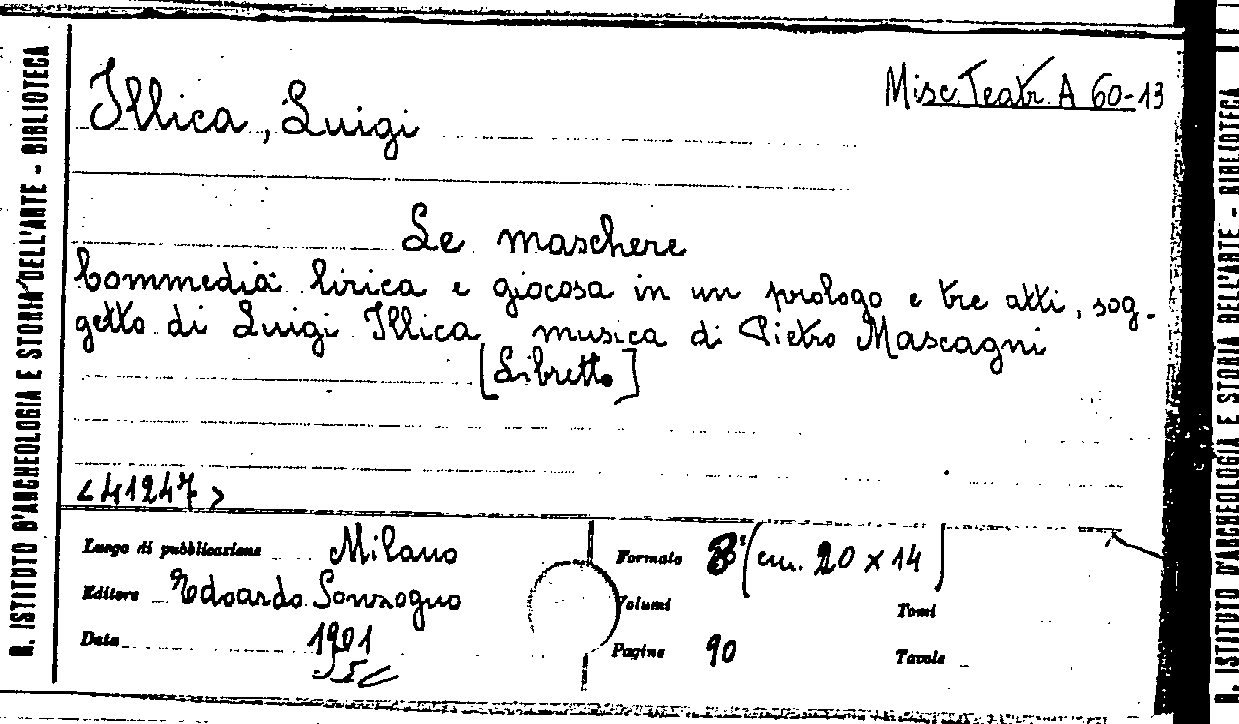 R. ISTITUTO D'ARCHEOLOGIA E STORIA DELL'ARTE - BIBLIOTECA
Illica, Luigi
Misc. Teatr. A 60-13
Le maschere
Commedia lirica e giocosa in un prologo e tre atti, sog-
getto di Luigi Illica, musica di Pietro Mascagni
[Libretto]
<41247>
Luogo di pubblicazione Milano
Editore Edoardo Sonzogno
Data 1901
Formato 8° (cm. 20 x 14)
Volumi
Tomi
Pagine 90
Tavole
R. ISTITUTO D'ARCHEOLOGIA E STORIA DELL'ARTE - BIBLIOTECA